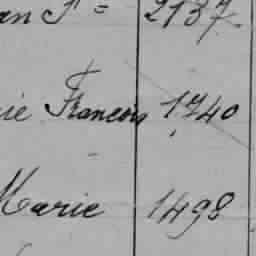 an Pre 2137
ie François 1740
Marie 1498